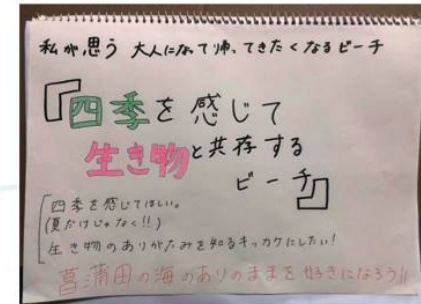 私が思う 大人になって帰ってきたくなるビーチ
『四季を感じて
生き物と共存する
ビーチ』
四季を感じてほしい。
(夏だけじゃなく!!)
生き物のありがたみを知るキッカケにしたい!
菖蒲田の海のありのままを好きになろう!!